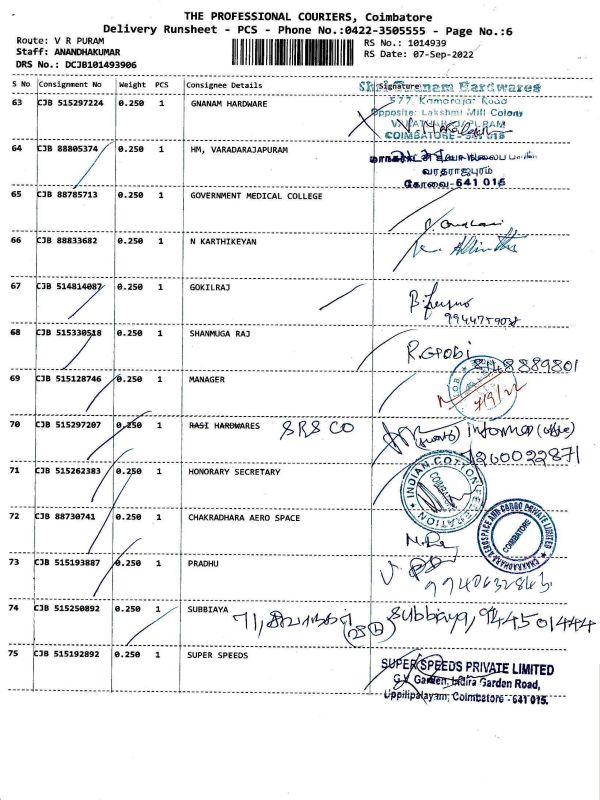 THE PROFESSIONAL COURIERS, Coimbatore
Delivery Runsheet - PCS - Phone No.:0422-3505555 - Page No.:6
Route: V R PURAM
Staff: ANANDHAKUMAR
DRS No.: DCJB101493906
RS No.: 1014939
RS Date: 07-Sep-2022
S No Consignment No Weight PCS Consignee Details Signature
63 CJB 515297224 0.250 1 GNANAM HARDWARE
Hardwares
577, Kamarajar Road
Opposite: Lakshmi Mill Colony
COIMBATORE - 641 015
64 CJB 88805374 0.250 1 HM, VARADARAJAPURAM
வரதராஜபுரம்
கோவை-641 015
65 CJB 88785374 0.250 1 GOVERNMENT MEDICAL COLLEGE
66 CJB 88833682 0.250 1 N KARTHIKEYAN
67 CJB 514814087 0.250 1 GOKILRAJ
68 CJB 515330518 0.250 1 SHANMUGA RAJ R.GPObi
69 CJB 515128746 0.250 1 MANAGER
7/9/22
70 CJB 515297207 0.250 1 RASI HARDWARES SRS CO
71 CJB 515262383 0.250 1 HONORARY SECRETARY
INDIAN COTTON FEDERATION
72 CJB 88730741 0.250 1 CHAKRADHARA AERO SPACE
CHAKRADHARA AEROSPACE AND CARGO PRIVATE LIMITED
COIMBATORE
73 CJB 515193887 0.250 1 PRADHU
74 CJB 515250892 0.250 1 SUBBIAYA Subbiaya, 944501444
75 CJB 515192892 0.250 1 SUPER SPEEDS
SUPER SPEEDS PRIVATE LIMITED
G.V. Garden, Indira Garden Road,
Uppilipalayam, Coimbatore - 641 015.